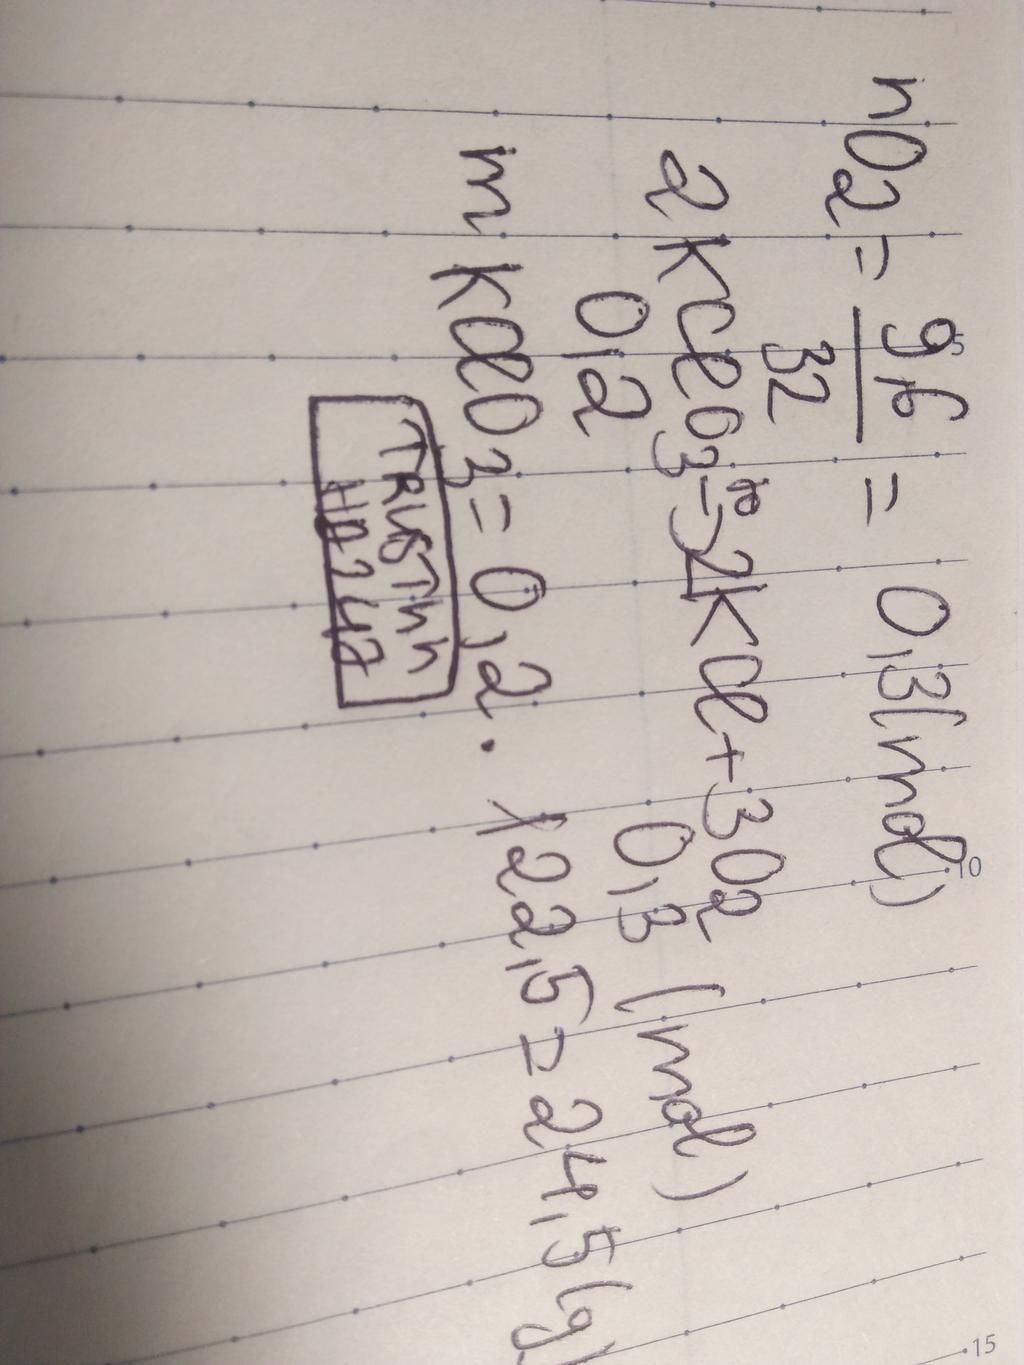 nO2 = 9,6/32 = 0,3(mol)
2KClO3 -to-> 2KCl + 3O2
0,2 0,3 (mol)
mKClO3 = 0,2 . 122,5 = 24,5(g)
5
10
15